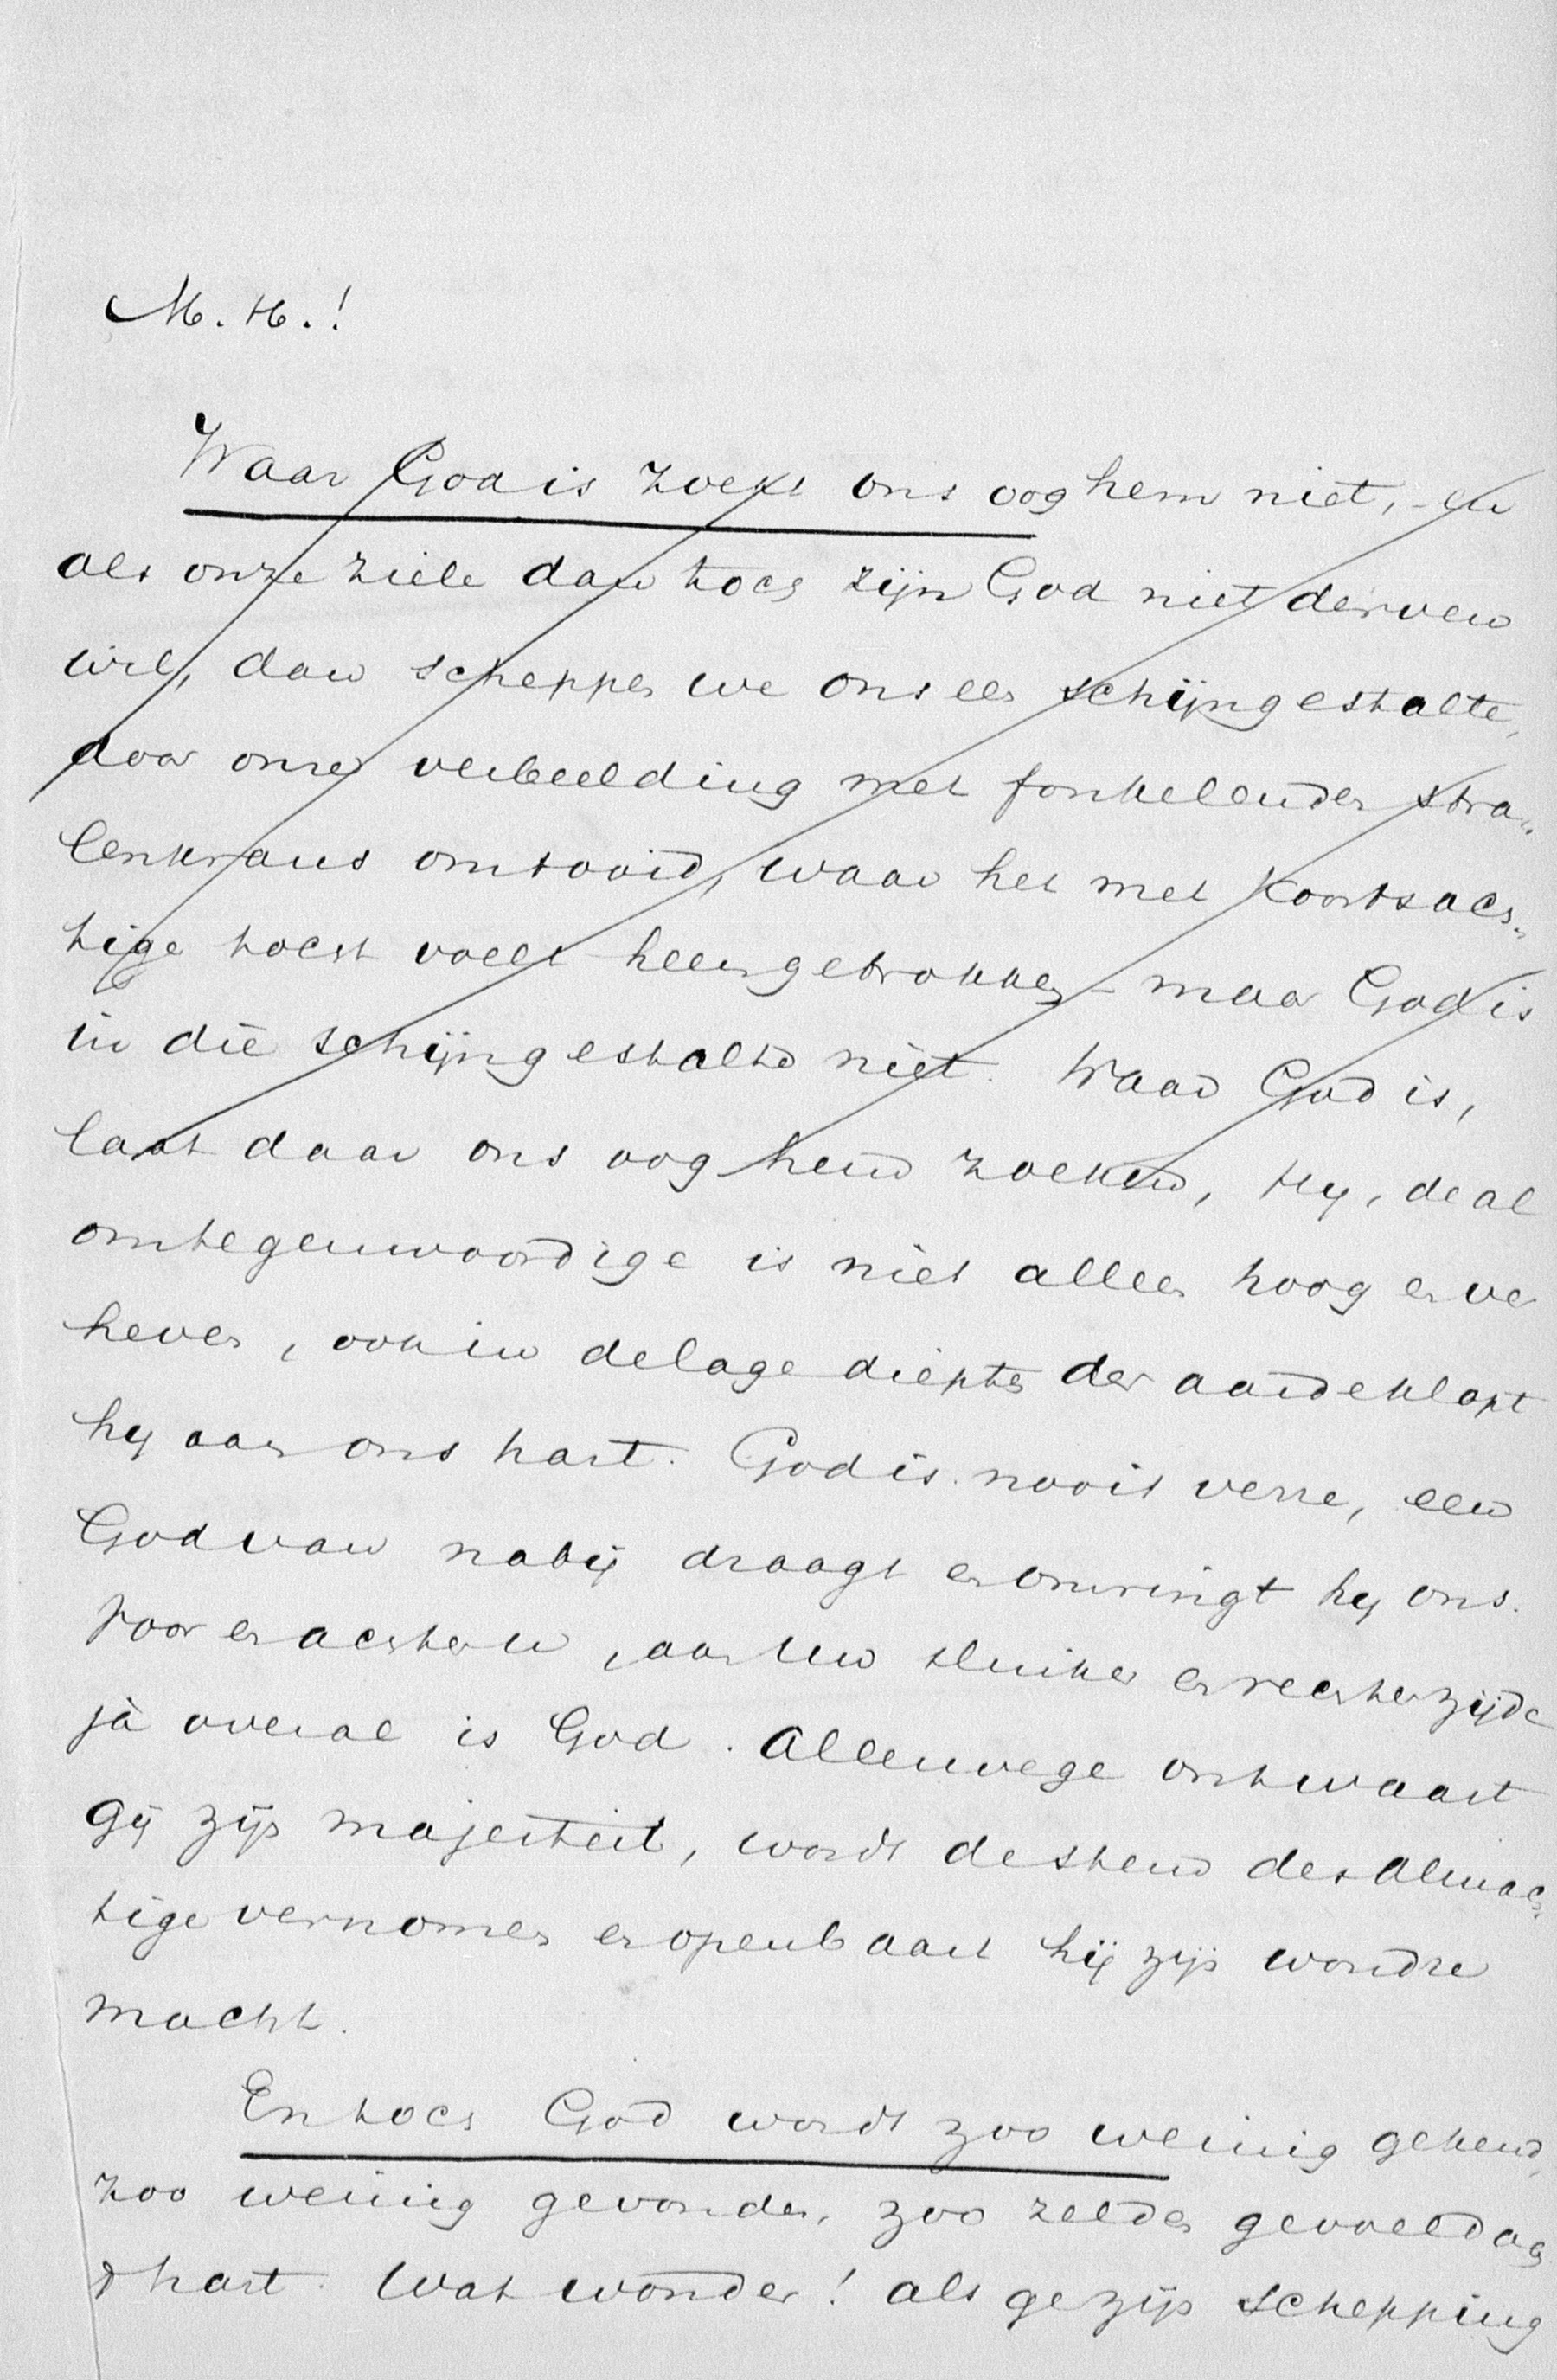 M. H.!
Waar God is zoekt ons oog hem niet, - en
als onze ziele dan toch zijn God niet derven
wil, dan scheppen we ons een schijngestalte,
door onze verbeelding met fonkelenden stra-
lenkrans omtooid, waar het met koortsach-
tige toch voelt heengetrokken - maar God is
in die schijngestalte niet. Waar God is,
laat daar ons oog hem zoeken, Hy, de al
omtegenwoordige is niet alleen hoog en ver
heven, ook in de lage diepten der aarde klopt
hy aan ons hart. God is nooit verre, een
God van nabij draagt en omringt hy ons.
Voor en achter u, aan uw slinker en rechterzijde
jà overal is God. Allenwege ontwaart
gij zijn majesteit, wordt de stem des Almach-
tige vernomen en openbaart hij zijn wondre
macht.
En toch God wordt zoo weinig gekend,
zoo weinig gevonden, zoo zelden gevoeld aan
't hart. Wat wonder! als ge zijn schepping